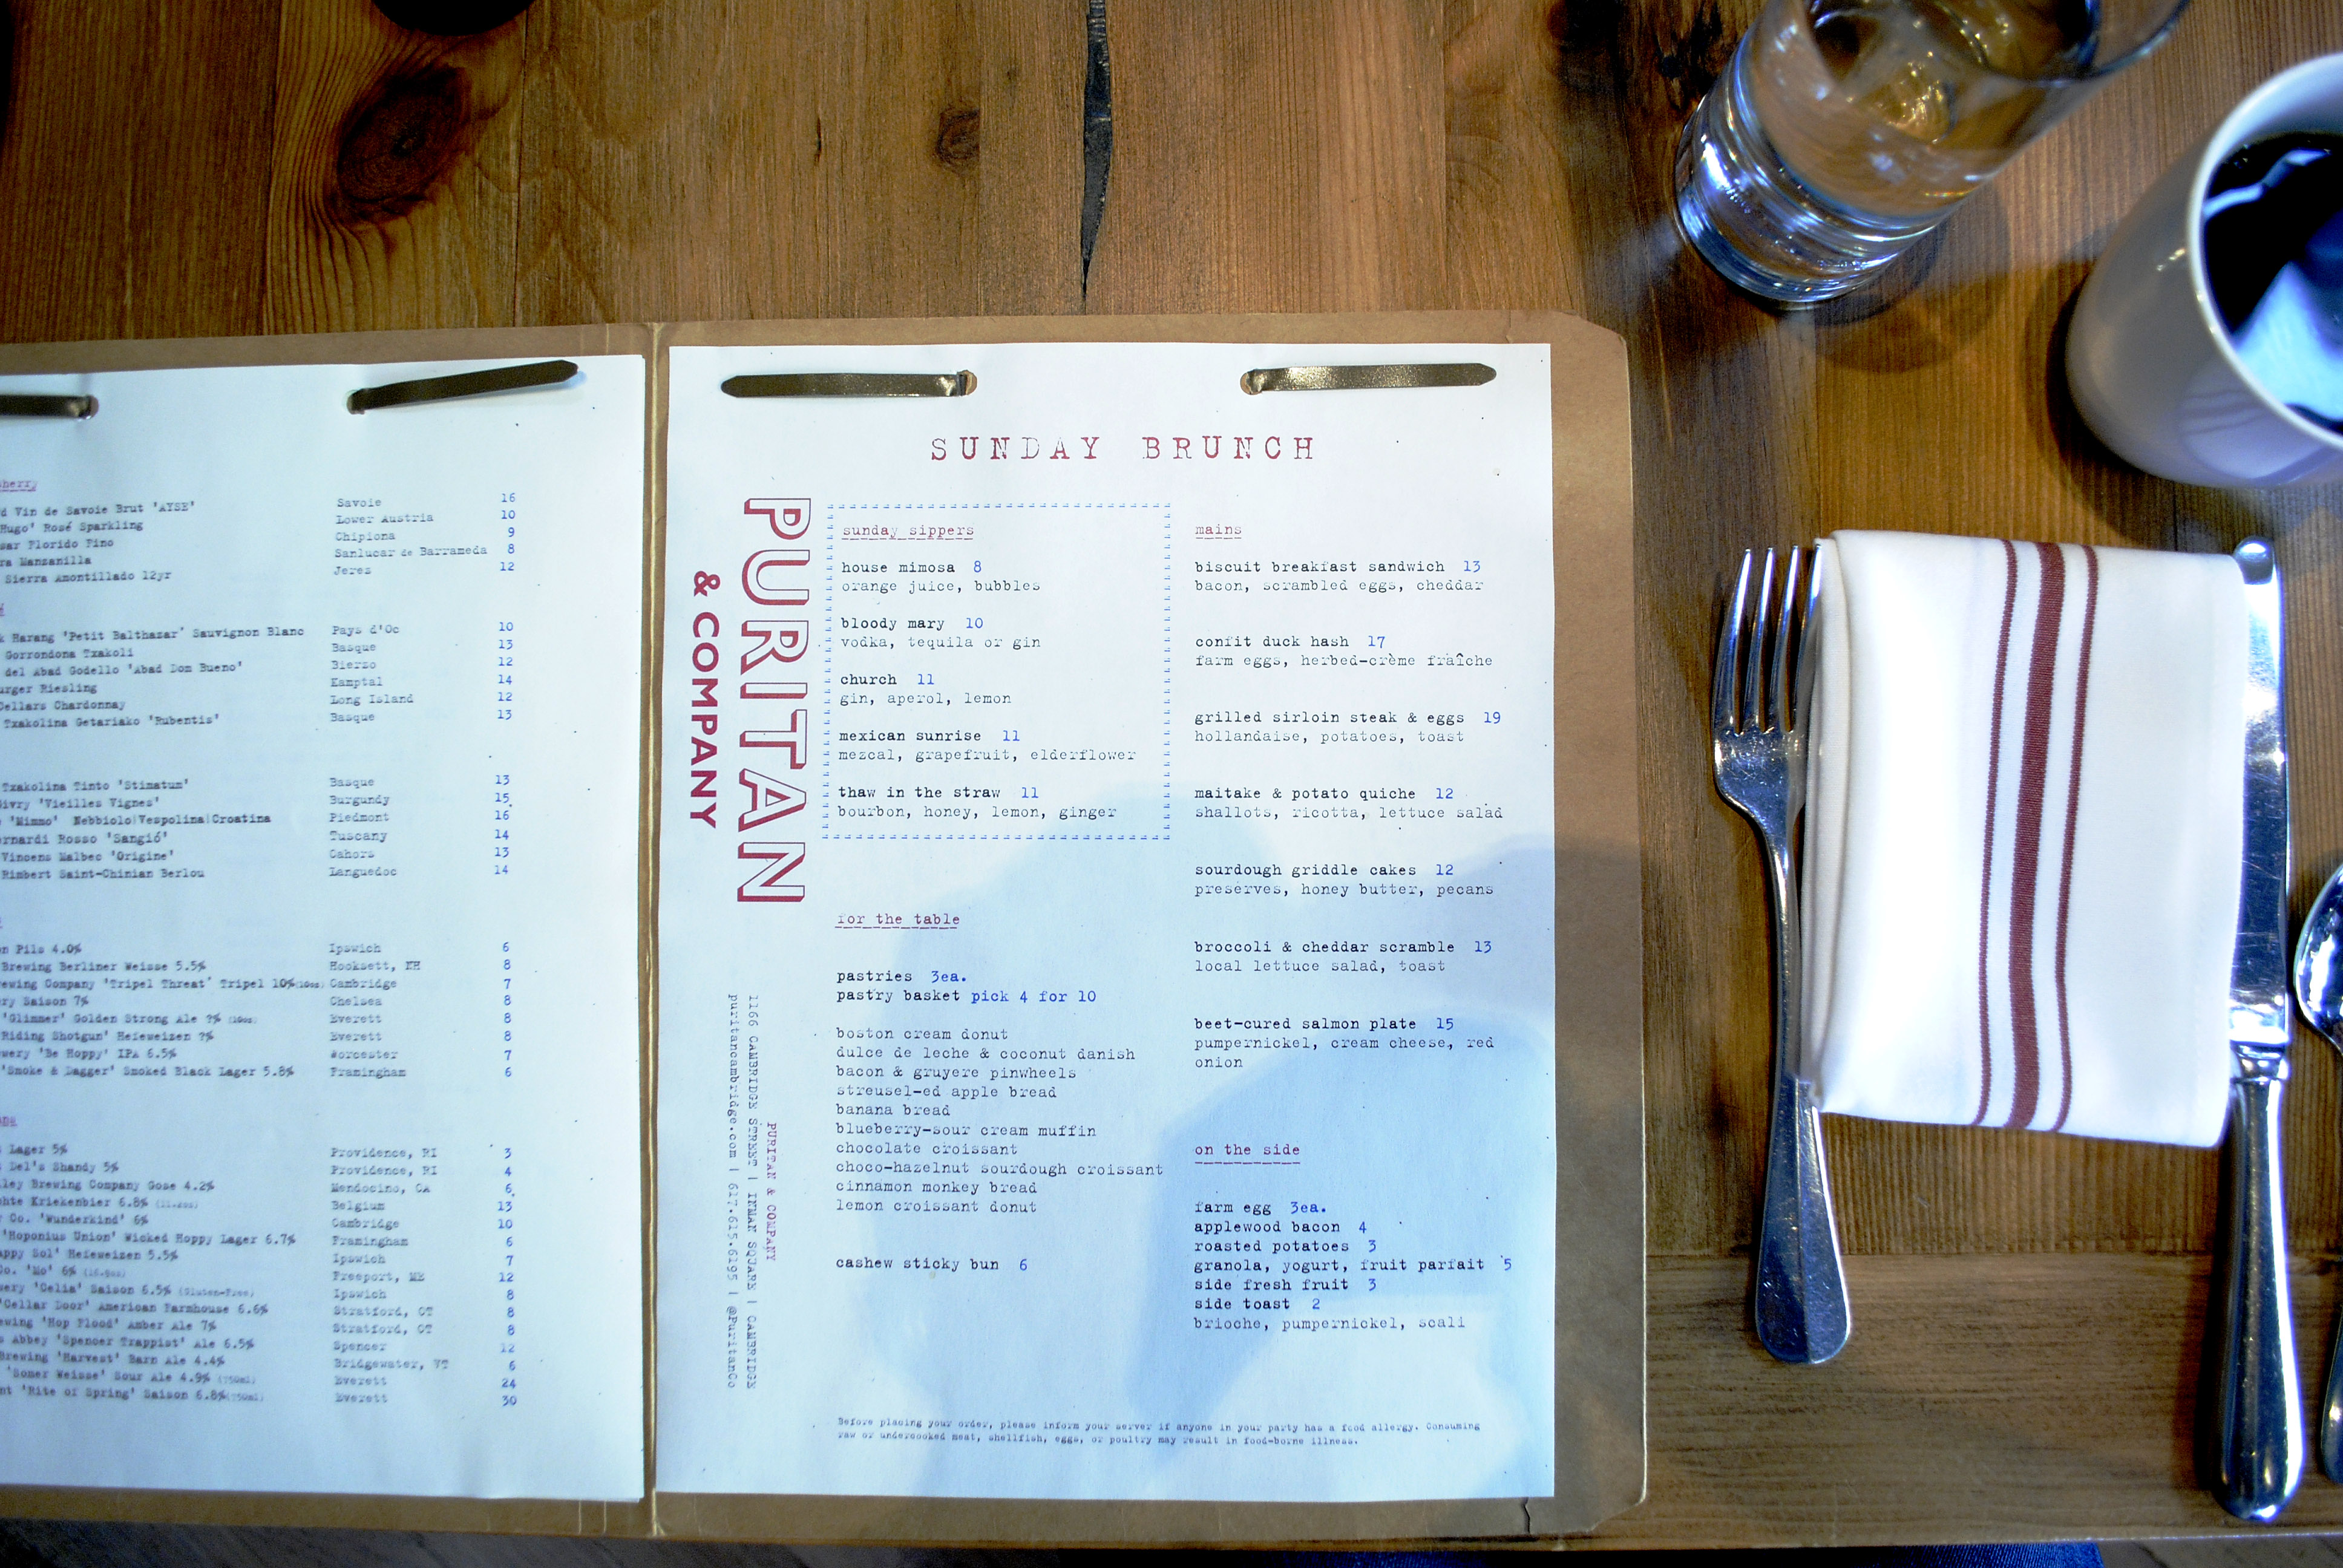 sherry
d Vin de Savoie Brut 'AYSE' Savoie 16
Hugo' Rosé Sparkling Lower Austria 10
sar Florido Fino Chipiona 9
ra Manzanilla Sanlucar de Barrameda 8
Sierra Amontillado 12yr Jerez 12
k Harang 'Petit Balthazar' Sauvignon Blanc Pays d'Oc 10
Gorrondona Txakoli Basque 13
del Abad Godello 'Abad Dom Bueno' Bierzo 12
urger Riesling Kamptal 14
Cellars Chardonnay Long Island 12
Txakolina Getariako 'Rubentis' Basque 13
Txakolina Tinto 'Stimatum' Basque 13
Givry 'Vieilles Vignes' Burgundy 15
'Mimmo' Nebbiolo|Vespolina|Croatina Piedmont 16
ernardi Rosso 'Sangió' Tuscany 14
Vincens Malbec 'Origine' Cahors 13
Rimbert Saint-Chinian Berlou Languedoc 14
n Pils 4.0% Ipswich 6
Brewing Berliner Weisse 5.5% Hooksett, NH 8
ewing Company 'Tripel Threat' Tripel 10%(10oz) Cambridge 7
ry Saison 7% Chelsea 8
'Glimmer' Golden Strong Ale ?% (10oz) Everett 8
Riding Shotgun' Hefeweizen ?% Everett 8
wery 'Be Hoppy' IPA 6.5% Worcester 7
'Smoke & Dagger' Smoked Black Lager 5.8% Framingham 6
Lager 5% Providence, RI 3
Del's Shandy 5% Providence, RI 4
ley Brewing Company Gose 4.2% Mendocino, CA 6
hte Kriekenbier 6.8% Belgium 13
Co. 'Wunderkind' 6% Cambridge 10
'Hoponius Union' Wicked Hoppy Lager 6.7% Framingham 6
appy Sol' Hefeweizen 5.5% Ipswich 7
Co. 'Mo' 6% (16.9oz) Freeport, ME 12
ery 'Celia' Saison 6.5% (Gluten-Free) Ipswich 8
'Cellar Door' American Farmhouse 6.6% Stratford, CT 8
ewing 'Hop Flood' Amber Ale 7% Stratford, CT 8
s Abbey 'Spencer Trappist' Ale 6.5% Spencer 12
Brewing 'Harvest' Barn Ale 4.4% Bridgewater, VT 6
'Somer Weisse' Sour Ale 4.9% (750ml) Everett 24
nt 'Rite of Spring' Saison 6.8%(750ml) Everett 30
SUNDAY BRUNCH
PURITAN
& COMPANY
sunday sippers
house mimosa 8
orange juice, bubbles
bloody mary 10
vodka, tequila or gin
church 11
gin, aperol, lemon
mexican sunrise 11
mezcal, grapefruit, elderflower
thaw in the straw 11
bourbon, honey, lemon, ginger
for the table
pastries 3ea.
pastry basket pick 4 for 10
boston cream donut
dulce de leche & coconut danish
bacon & gruyere pinwheels
streusel-ed apple bread
banana bread
blueberry-sour cream muffin
chocolate croissant
choco-hazelnut sourdough croissant
cinnamon monkey bread
lemon croissant donut
cashew sticky bun 6
mains
biscuit breakfast sandwich 13
bacon, scrambled eggs, cheddar
confit duck hash 17
farm eggs, herbed-crème fraîche
grilled sirloin steak & eggs 19
hollandaise, potatoes, toast
maitake & potato quiche 12
shallots, ricotta, lettuce salad
sourdough griddle cakes 12
preserves, honey butter, pecans
broccoli & cheddar scramble 13
local lettuce salad, toast
beet-cured salmon plate 15
pumpernickel, cream cheese, red
onion
on the side
farm egg 3ea.
applewood bacon 4
roasted potatoes 3
granola, yogurt, fruit parfait 5
side fresh fruit 3
side toast 2
brioche, pumpernickel, scali
PURITAN & COMPANY
1166 CAMBRIDGE STREET | INMAN SQUARE | CAMBRIDGE
puritancambridge.com | 617.615.6195 | @PuritanCo
Before placing your order, please inform your server if anyone in your party has a food allergy. Consuming
raw or undercooked meat, shellfish, eggs, or poultry may result in food-borne illness.